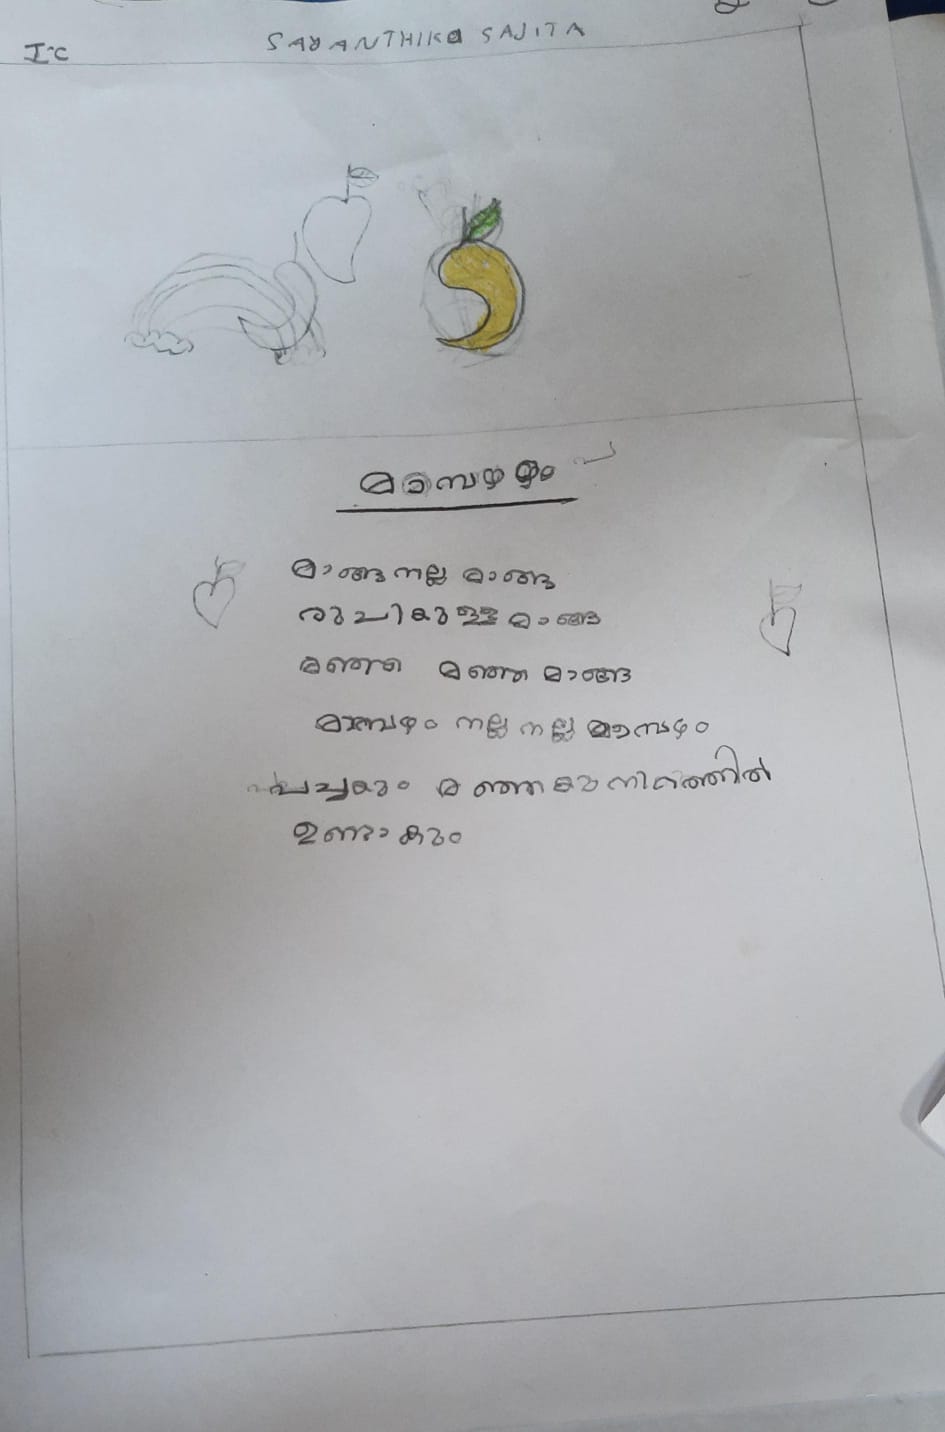 I-C
SAYANTHIKA SAJITA
മാമ്പഴം
മാങ്ങ നല്ല മാങ്ങ
രുചിയുള്ള മാങ്ങ
മഞ്ഞ മഞ്ഞ മാങ്ങ
മാമ്പഴം നല്ല നല്ല മാമ്പഴം
പച്ചയും മഞ്ഞയും നിറത്തിൽ
ഉണ്ടാകും